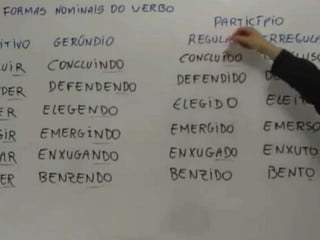 FORMAS NOMINAIS DO VERBO
PARTICÍPIO
ITIVO GERÚNDIO REGULA IRREGULA
UIR CONCLUINDO CONCLUÍDO CLUSO
DER DEFENDENDO DEFENDIDO DEFE
ER ELEGENDO ELEGIDO ELEITO
GIR EMERGINDO EMERGIDO EMERSO
AR ENXUGANDO ENXUGADO ENXUTO
ER BENZENDO BENZIDO BENTO